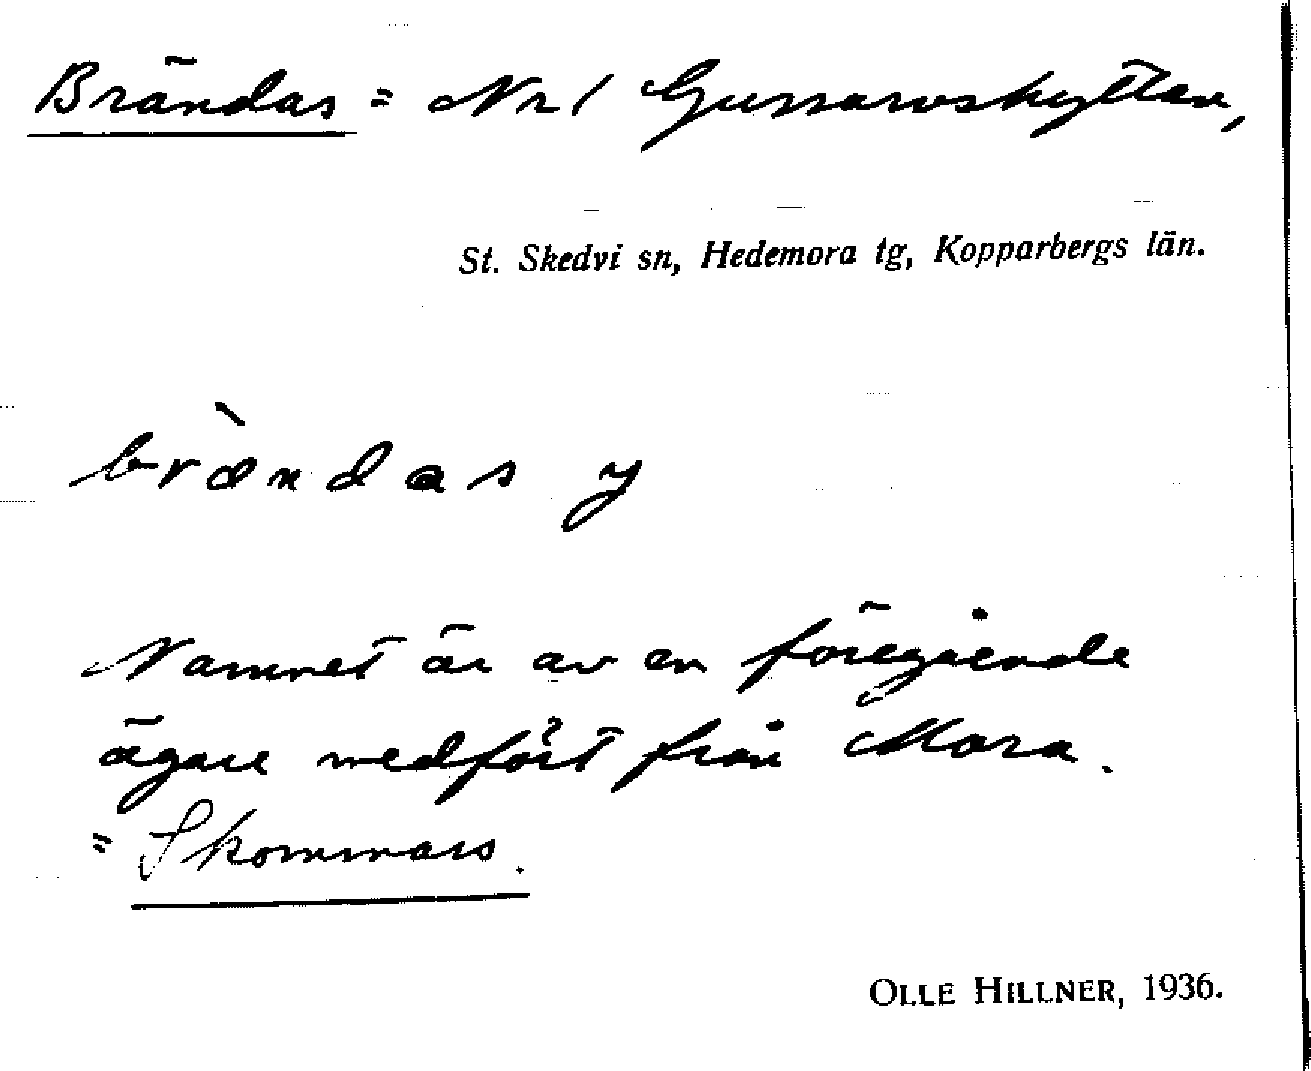 Brändas = Nr 1 Gussarvshyttan,
St. Skedvi sn, Hedemora tg, Kopparbergs län.
bræ̀ndas y
Namnet är av en föregående
ägare medfört från Mora.
= Skommars.
OLLE HILLNER, 1936.